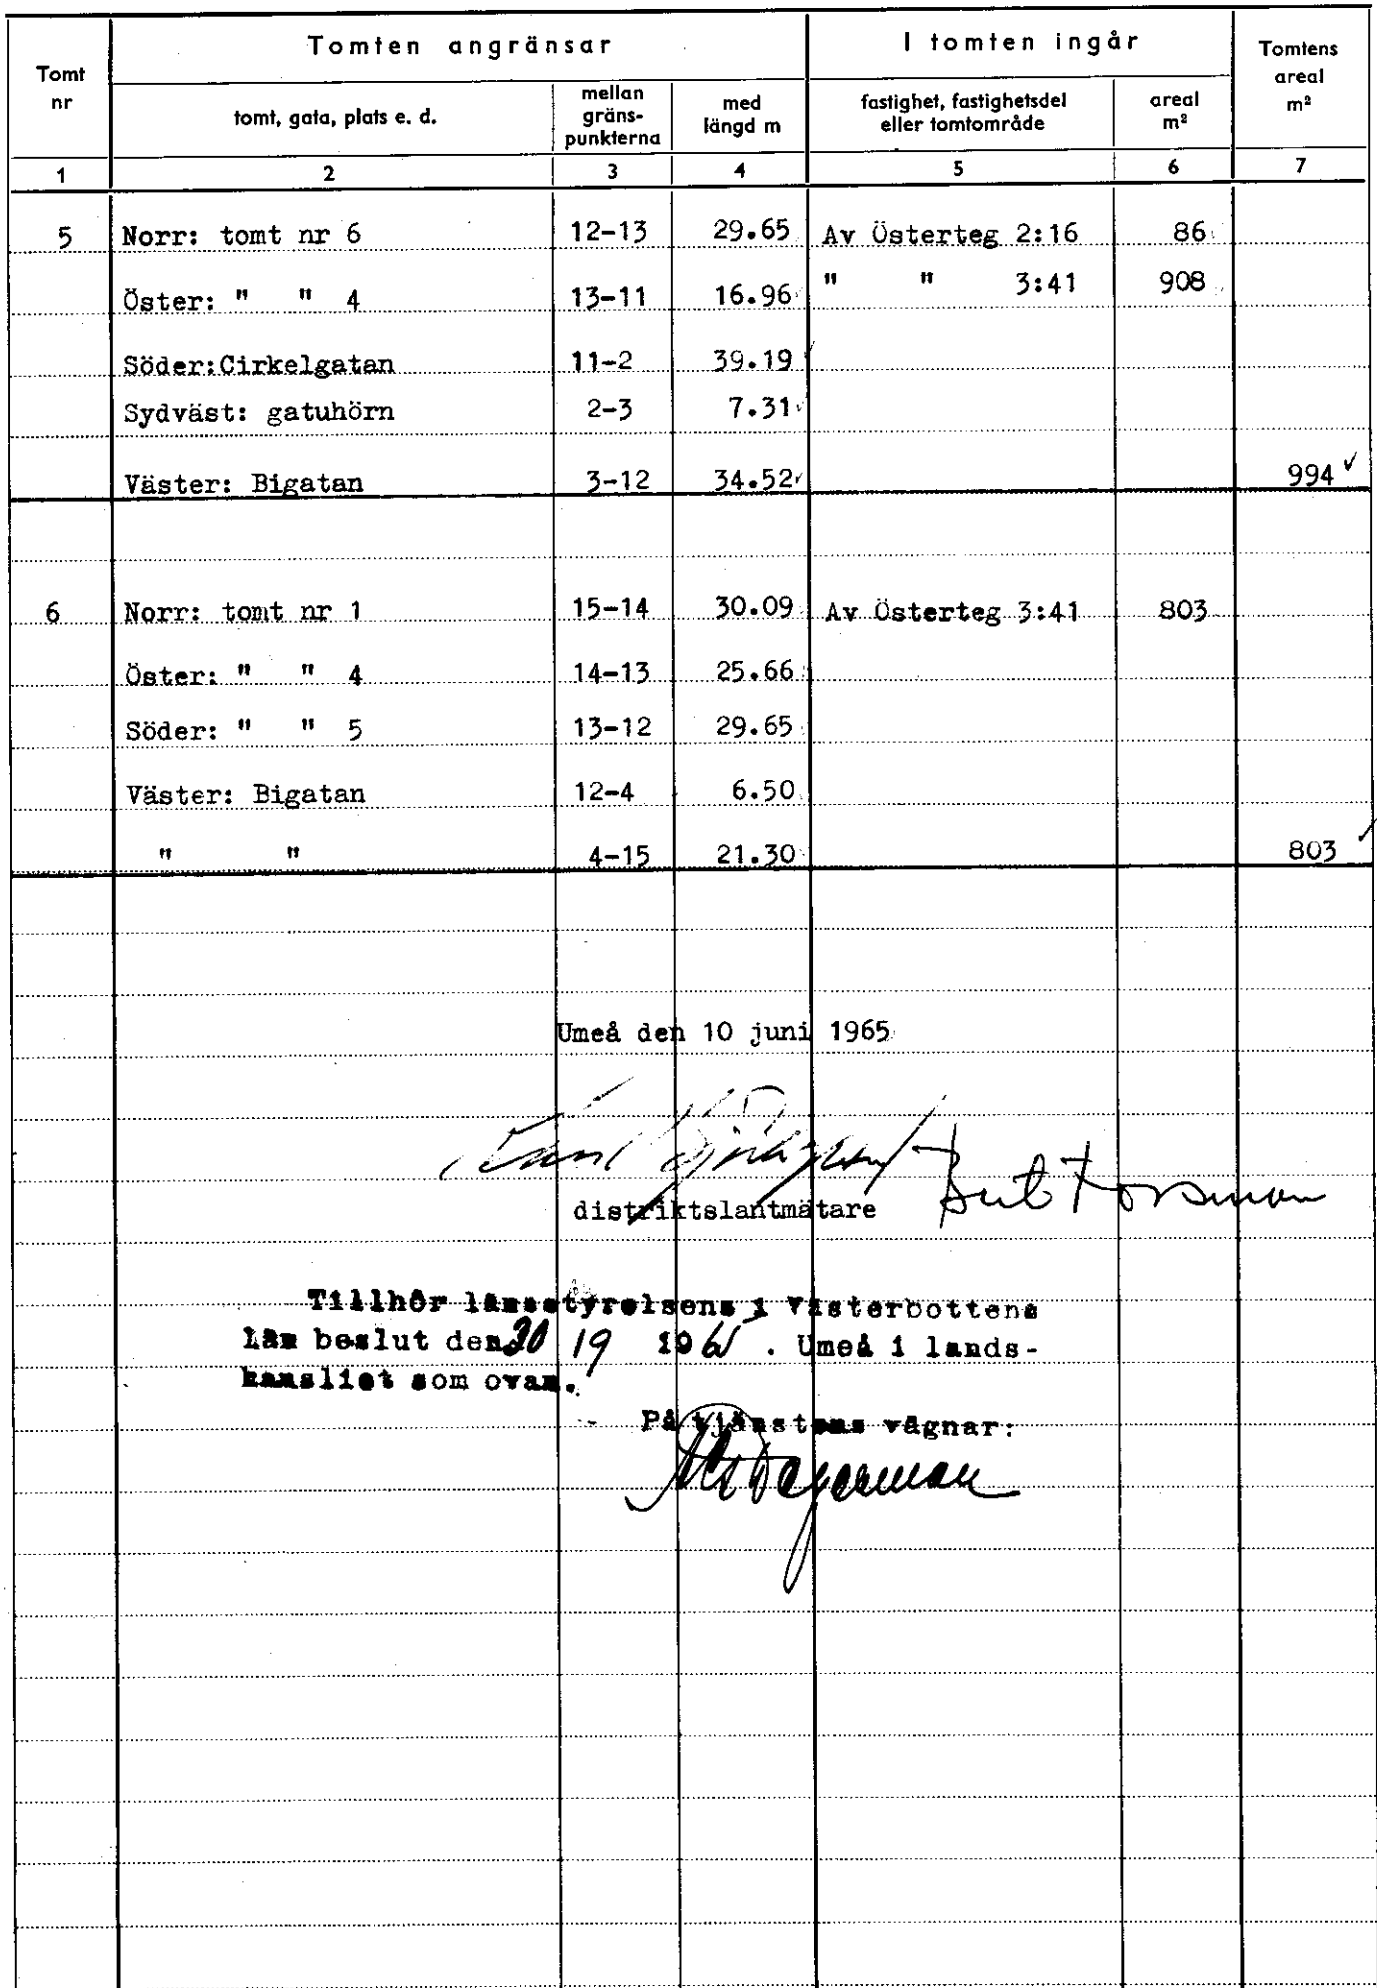 Tomt nr | Tomten angränsar | I tomten ingår | Tomtens areal m²
tomt, gata, plats e. d. | mellan gräns-punkterna | med längd m | fastighet, fastighetsdel eller tomtområde | areal m²
1 | 2 | 3 | 4 | 5 | 6 | 7
5 | Norr: tomt nr 6 | 12-13 | 29.65 | Av Österteg 2:16 | 86
Öster: " " 4 | 13-11 | 16.96 | " " 3:41 | 908
Söder:Cirkelgatan | 11-2 | 39.19
Sydväst: gatuhörn | 2-3 | 7.31
Väster: Bigatan | 3-12 | 34.52 | 994 ✓
6 | Norr: tomt nr 1 | 15-14 | 30.09 | Av Österteg 3:41 | 803
Öster: " " 4 | 14-13 | 25.66
Söder: " " 5 | 13-12 | 29.65
Väster: Bigatan | 12-4 | 6.50
" " | 4-15 | 21.30 | 803 ✓
Umeå den 10 juni 1965
Forsman
distriktslantmätare
Tillhör länsstyrelsens i Västerbottens
län beslut den 30/9 1965. Umeå i lands-
kansliet som ovan.
På tjänstens vägnar: